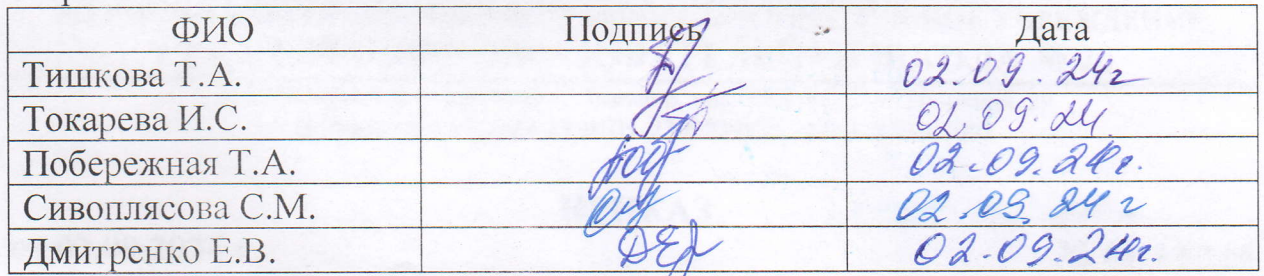 ФИО Подпись Дата
Тишкова Т.А. 02.09.24г
Токарева И.С. 02.09.24
Побережная Т.А. 02.09.24г.
Сивоплясова С.М. 02.09.24г
Дмитренко Е.В. 02.09.24г.